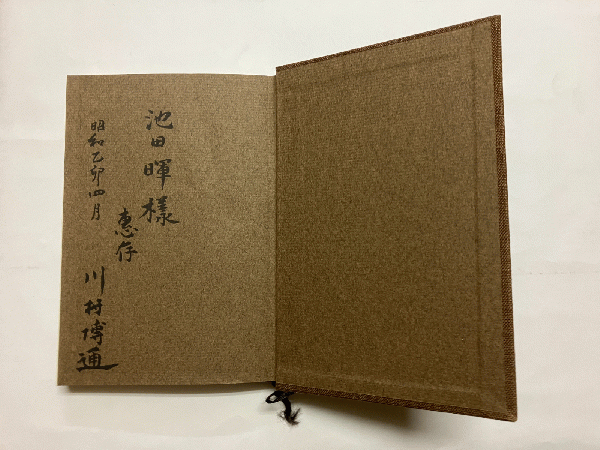 池田暉様
恵存
昭和乙卯四月
川村博通